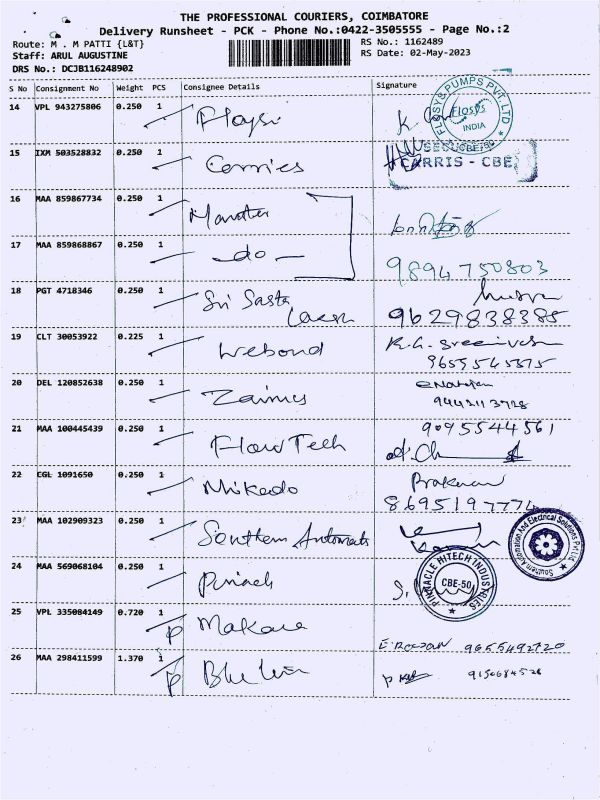 THE PROFESSIONAL COURIERS, COIMBATORE
Delivery Runsheet - PCK - Phone No.:0422-3505555 - Page No.:2
Route: M . M PATTI {L&T}
RS No.: 1162489
Staff: ARUL AUGUSTINE
RS Date: 02-May-2023
DRS No.: DCJB116248902
S No Consignment No Weight PCS Consignee Details Signature
14 VPL 943275806 0.250 1 Floysi
FLOSYS PUMPS PVT. LTD
FLOSYS
INDIA
15 IXM 503528832 0.250 1 Carries
CARRIS - CBE
16 MAA 859867734 0.250 1
17 MAA 859868867 0.250 1 - do -
9894750803
18 PGT 4718346 0.250 1 Sri Sasta
9629838385
19 CLT 30053922 0.225 1 Webond K.G. Sreenivasan
9659545575
20 DEL 120852638 0.250 1 Zainus
9442113728
21 MAA 100445439 0.250 1 Flow Tech 9095544561
22 CGL 1091650 0.250 1 Mikedo
8695197774
23 MAA 102909323 0.250 1 Southern Automats
Southern Automation And Electrical Solutions Pvt Ltd
24 MAA 569068104 0.250 1 Pinach
PINNACLE HITECH INDUSTRIES
CBE-50
25 VPL 335084149 0.720 1 P Makare 9655492720
26 MAA 298411599 1.370 1 P 9150684528